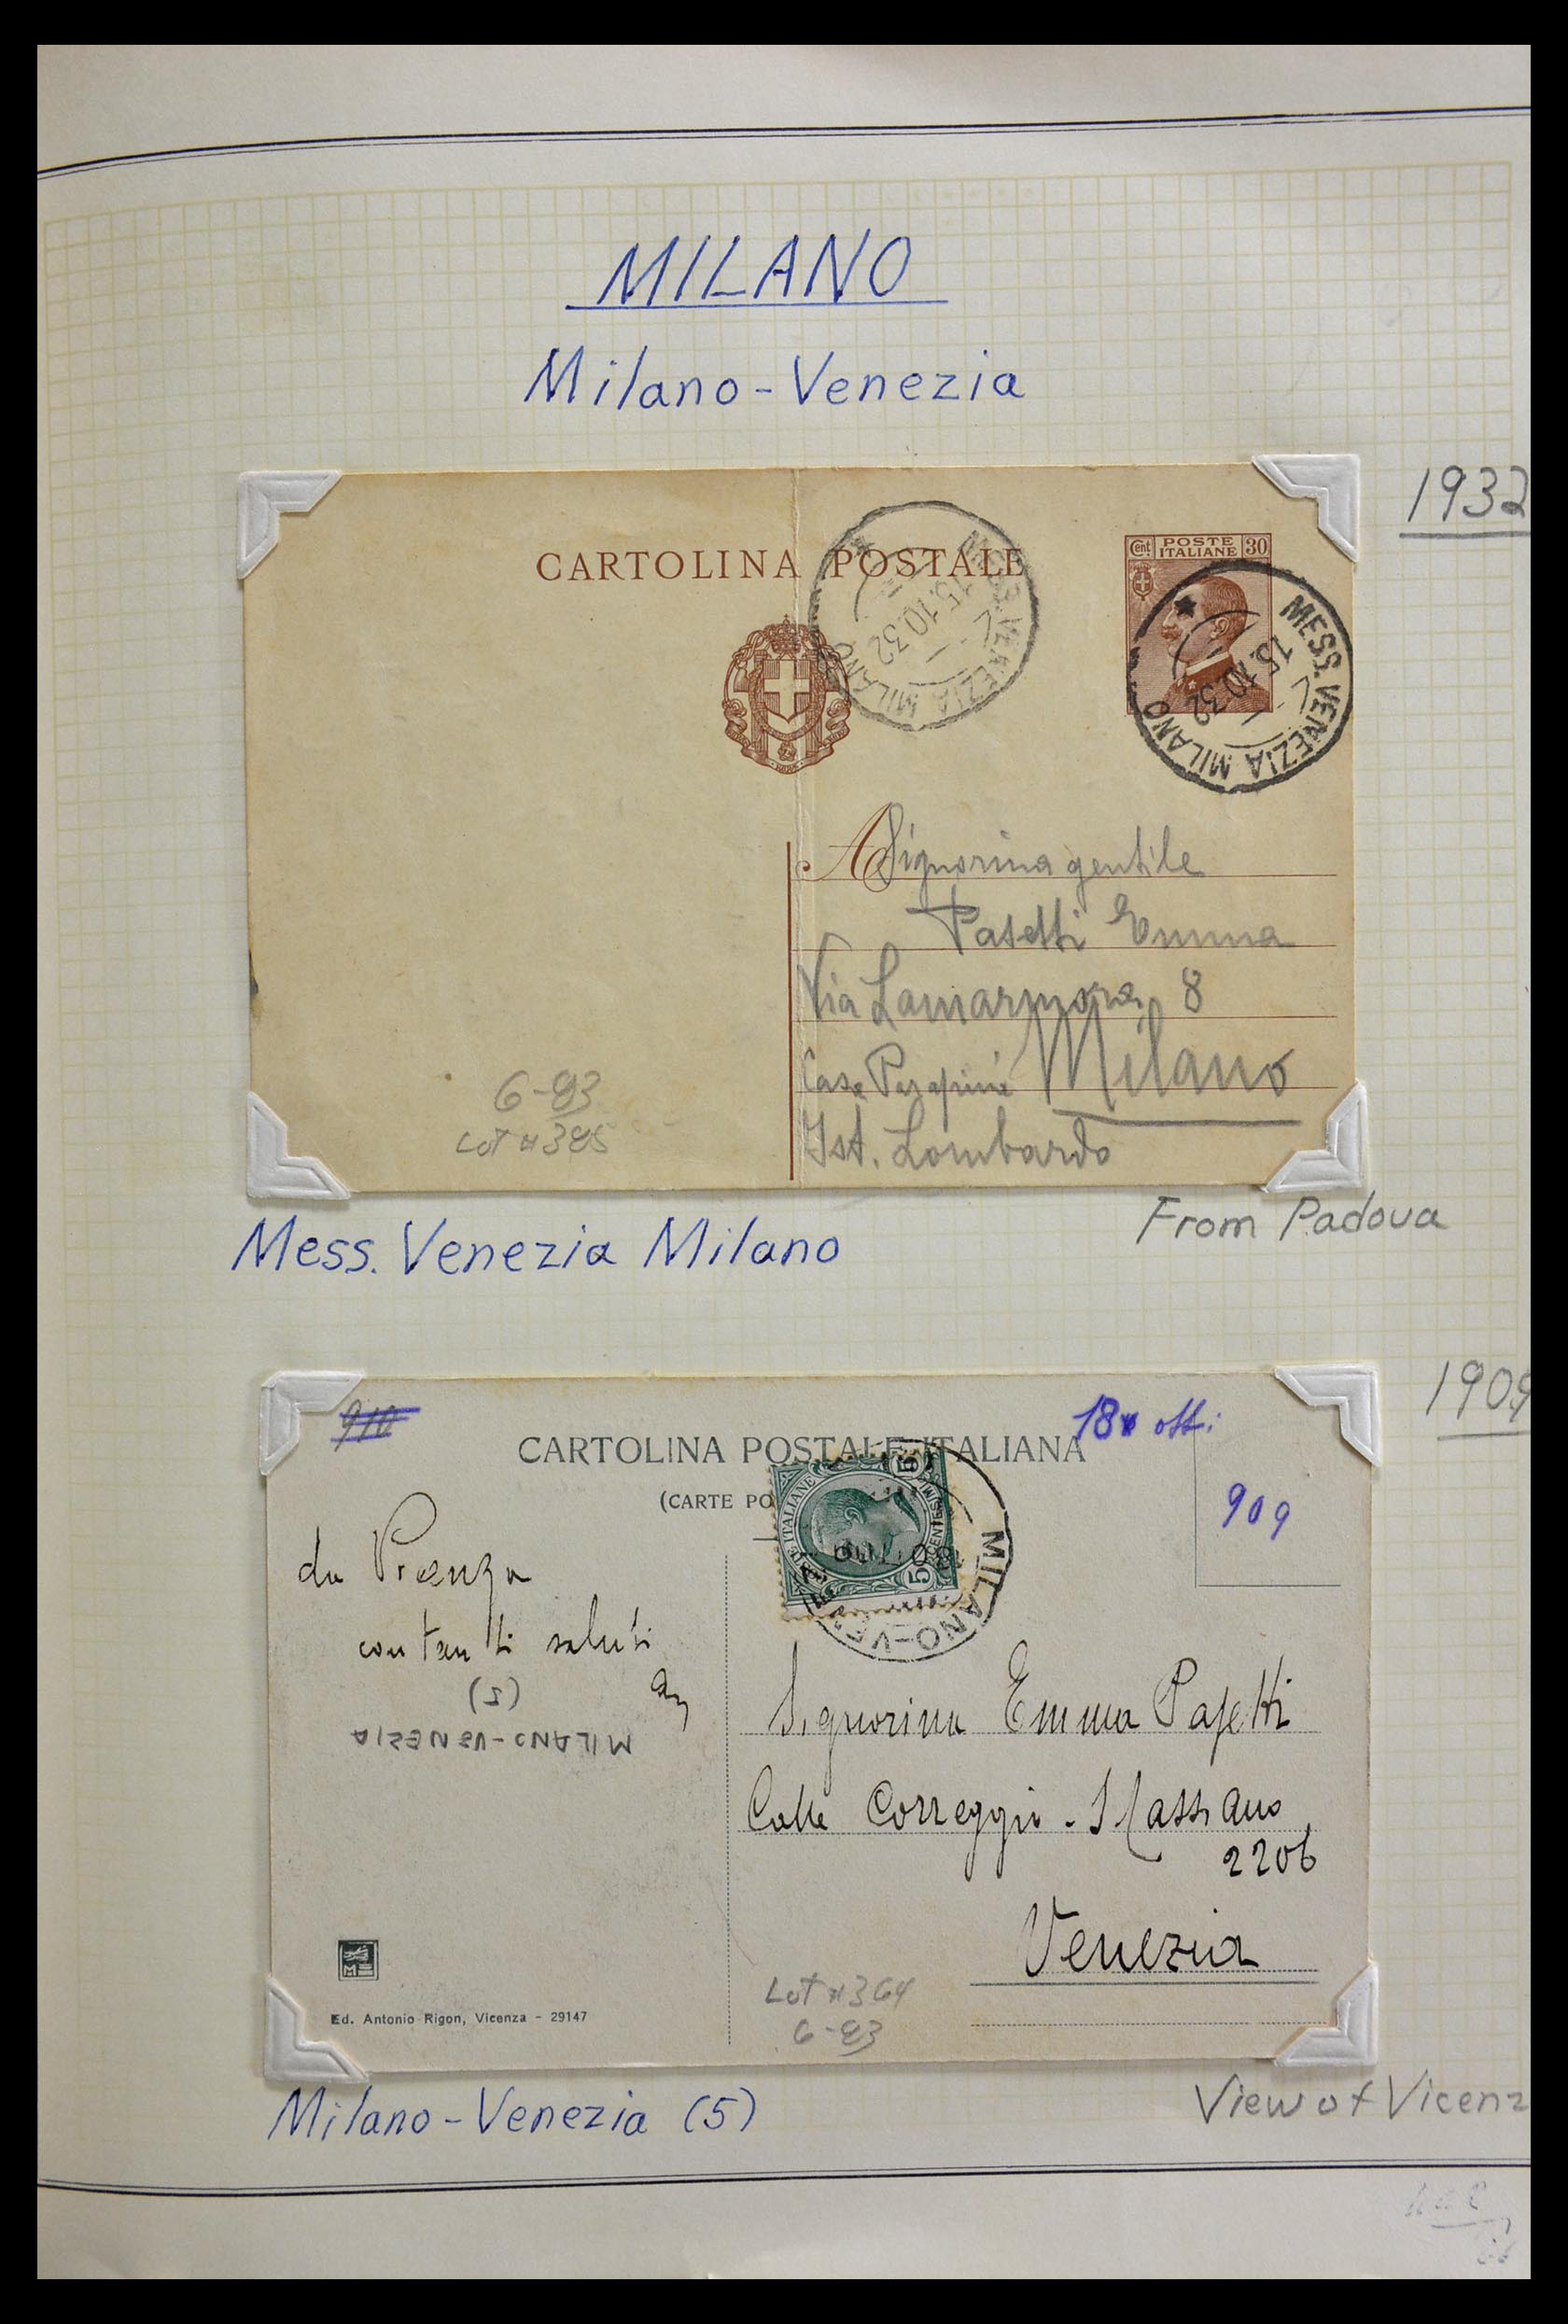 MILANO
Milano-Venezia
1932
CARTOLINA POSTALE
Cent. POSTE ITALIANE 30
MESS. VENEZIA MILANO
15.10.32
MESS. VENEZIA MILANO
15.10.32
A Signorina gentile
Pasetti Emma
Via Lamarmora, 8
Casa Milano
Ist. Lombardo
6-83
Lot #385
From Padova
Mess. Venezia Milano
1909
910
18 ott:
CARTOLINA POSTALE ITALIANA
(CARTE PO
909
POSTE ITALIANE
CENTESIMI
5
MILANO-VE
con tanti saluti
(5)
MILANO-VENEZIA
Signorina Emma Pasetti
Calle Correggio - S Cassiano
2206
Venezia
Ed. Antonio Rigon, Vicenza - 29147
Lot #364
6-83
Milano-Venezia (5)
View of Vicenz